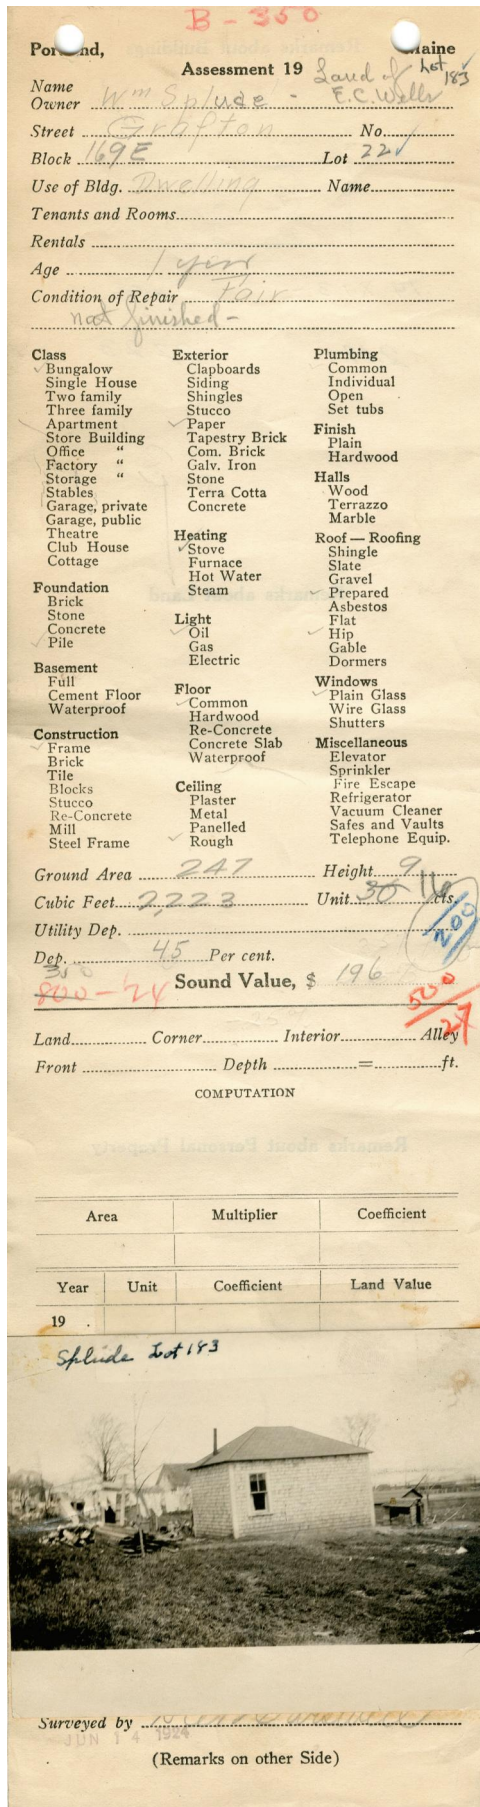 B - 350
Portland, Maine
Assessment 19
Land of Lot 183
E. C. Wells
Name
Owner Wm Splude -
Street Grafton No.
Block 169E Lot 22
Use of Bldg. Dwelling Name
Tenants and Rooms
Rentals
Age 1 year
Condition of Repair Fair
not finished -
Class
Bungalow
Single House
Two family
Three family
Apartment
Store Building
Office "
Factory "
Storage "
Stables
Garage, private
Garage, public
Theatre
Club House
Cottage
Foundation
Brick
Stone
Concrete
Pile
Basement
Full
Cement Floor
Waterproof
Construction
Frame
Brick
Tile
Blocks
Stucco
Re-Concrete
Mill
Steel Frame
Exterior
Clapboards
Siding
Shingles
Stucco
Paper
Tapestry Brick
Com. Brick
Galv. Iron
Stone
Terra Cotta
Concrete
Heating
Stove
Furnace
Hot Water
Steam
Light
Oil
Gas
Electric
Floor
Common
Hardwood
Re-Concrete
Concrete Slab
Waterproof
Ceiling
Plaster
Metal
Panelled
Rough
Plumbing
Common
Individual
Open
Set tubs
Finish
Plain
Hardwood
Halls
Wood
Terrazzo
Marble
Roof — Roofing
Shingle
Slate
Gravel
Prepared
Asbestos
Flat
Hip
Gable
Dormers
Windows
Plain Glass
Wire Glass
Shutters
Miscellaneous
Elevator
Sprinkler
Fire Escape
Refrigerator
Vacuum Cleaner
Safes and Vaults
Telephone Equip.
Ground Area 247 Height 9
Cubic Feet 2,223 Unit 30 16 cts.
Utility Dep. 200
Dep. 45 Per cent.
350
800 - 24 Sound Value, $ 196 500
24
Land Corner Interior Alley
Front Depth = ft.
COMPUTATION
Area Multiplier Coefficient
Year Unit Coefficient Land Value
19 .
Splude Lot 183
Surveyed by
JUN 14 1924
(Remarks on other Side)